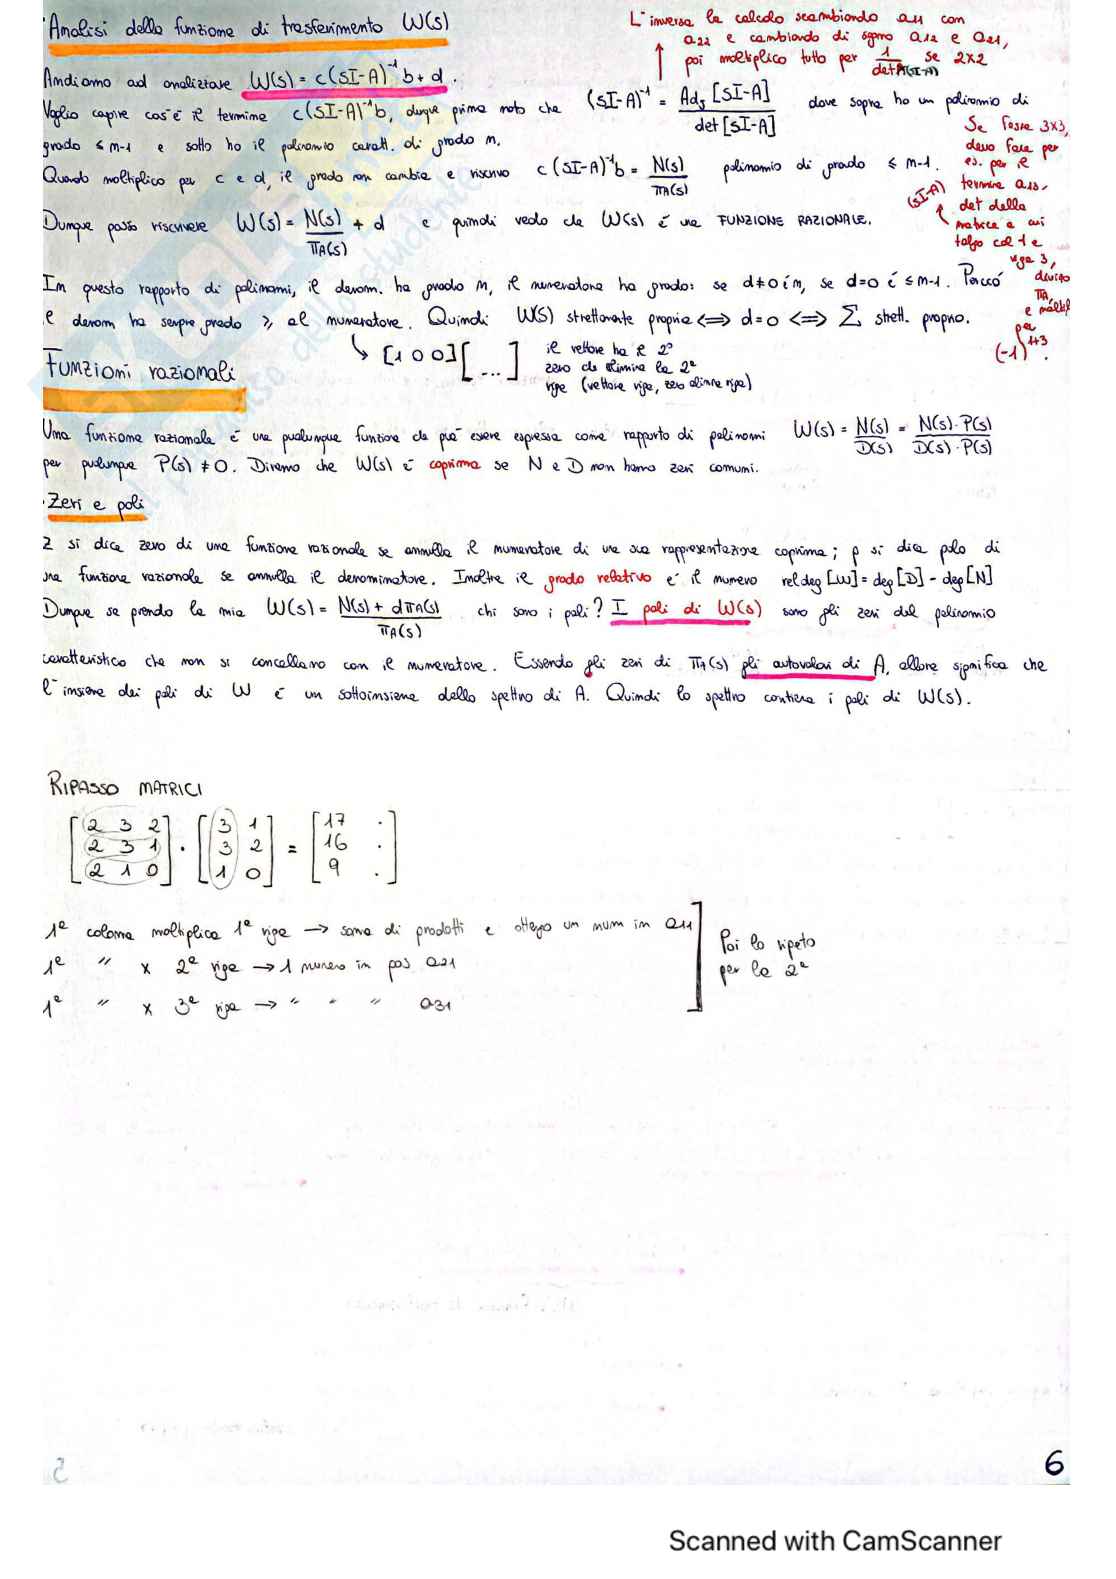 Analisi della funzione di trasferimento W(s)
L'inversa la calcolo scambiando a11 con
a22 e cambiando di segno a12 e a21,
poi moltiplico tutto per 1/det(sI-A) se 2x2
Andiamo ad analizzare W(s) = c(sI-A)⁻¹b + d.
Voglio capire cos'è il termine c(sI-A)⁻¹b, dunque prima noto che (sI-A)⁻¹ = Adj[sI-A]/det[sI-A] dove sopra ho un polinomio di
grado ≤ n-1 e sotto ho il polinomio caratt. di grado n.
Quando moltiplico per c e d, il grado non cambia e riscrivo c(sI-A)⁻¹b = N(s)/πA(s) polinomio di grado ≤ n-1.
Se fosse 3x3,
devo fare per
es. per il
termine a13,
(sI-A)
det della
matrice a cui
tolgo col 1 e
riga 3,
divido
πA,
e moltipl
per
(-1)¹⁺³.
Dunque posso riscrivere W(s) = N(s)/πA(s) + d e quindi vedo che W(s) è una FUNZIONE RAZIONALE.
In questo rapporto di polinomi, il denom. ha grado n, il numeratore ha grado: se d≠0 è n, se d=0 è ≤ n-1. Perciò
il denom ha sempre grado ≥ al numeratore. Quindi W(s) strettamente propria <=> d=0 <=> Σ strett. proprio.
↳ [1 0 0][ ... ] il vettore ha il 2°
zero che elimina la 2ª
riga (vettore riga, zero elimina riga)
Funzioni razionali
Una funzione razionale è una qualunque funzione che può essere espressa come rapporto di polinomi W(s) = N(s)/D(s) = N(s)·P(s)/D(s)·P(s)
per qualunque P(s) ≠ 0. Diremo che W(s) è coprima se N e D non hanno zeri comuni.
· Zeri e poli
Z si dice zero di una funzione razionale se annulla il numeratore di una sua rappresentazione coprima; p si dice polo di
una funzione razionale se annulla il denominatore. Inoltre il grado relativo è il numero reldeg[W] = deg[D] - deg[N]
Dunque se prendo la mia W(s) = N(s) + dπA(s)/πA(s) chi sono i poli? I poli di W(s) sono gli zeri del polinomio
caratteristico che non si cancellano con il numeratore. Essendo gli zeri di πA(s) gli autovalori di A, allora significa che
l'insieme dei poli di W è un sottoinsieme dello spettro di A. Quindi lo spettro contiene i poli di W(s).
RIPASSO MATRICI
[2 3 2] [3 1] [17 .]
[2 3 1] · [3 2] = [16 .]
[2 1 0] [1 0] [9 .]
1ª colonna moltiplica 1ª riga → somma di prodotti e ottengo un num in a11
1ª " x 2ª riga → 1 numero in pos a21
1ª " x 3ª riga → " " " a31
Poi lo ripeto
per la 2ª
6
Scanned with CamScanner